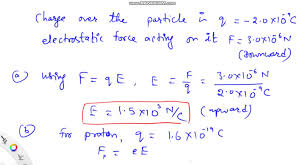 Charge over the particle is q = -2.0×10⁻⁹C
electrostatic force acting on it F = 3.0×10⁻⁶N
(downward)
(a) using F = qE , E = F/q = 3.0×10⁻⁶N / 2.0×10⁻⁹C
E = 1.5×10³ N/C (upward)
(b) for proton, q = 1.6×10⁻¹⁹C
F = eE